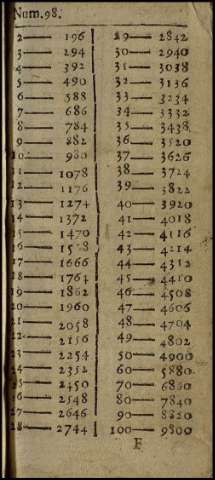 Num. 98.
2— 196
3— 294
4— 392
5— 490
6— 588
7— 686
8— 784
9— 882
10— 980
11— 1078
12— 1176
13— 1274
14— 1372
15— 1470
16— 1568
17— 1666
18— 1764
19— 1862
20— 1960
21— 2058
22— 2156
23— 2254
24— 2352
25— 2450
26— 2548
27— 2646
28— 2744
29— 2842
30— 2940
31— 3038
32— 3136
33— 3234
34— 3332
35— 3438.
36— 3520
37— 3626
38— 3724
39— 3822
40— 3920
41— 4018
42— 4116
43— 4214
44— 4312
45— 4410
46— 4508
47— 4606
48— 4704
49— 4802
50— 4900
60— 5880.
70— 6860
80— 7840
90— 8820
100— 9800
F